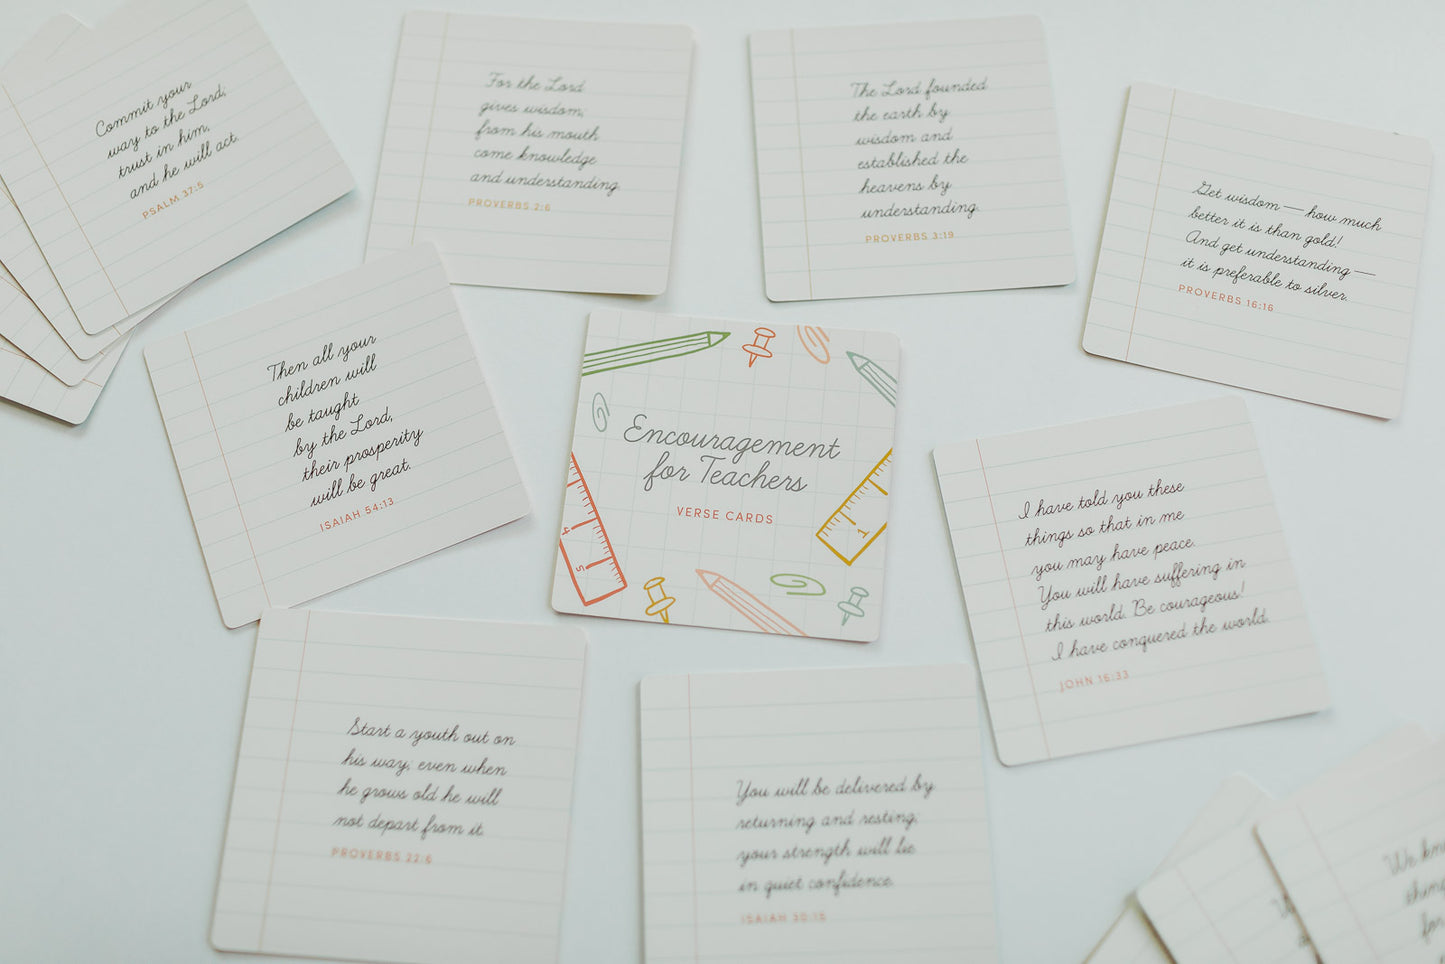 Commit your
way to the Lord;
trust in him,
and he will act.
PSALM 37:5
For the Lord
gives wisdom;
from his mouth
come knowledge
and understanding.
PROVERBS 2:6
The Lord founded
the earth by
wisdom and
established the
heavens by
understanding.
PROVERBS 3:19
Get wisdom — how much
better it is than gold!
And get understanding —
it is preferable to silver.
PROVERBS 16:16
Then all your
children will
be taught
by the Lord,
their prosperity
will be great.
ISAIAH 54:13
Encouragement
for Teachers
VERSE CARDS
4
5
1
I have told you these
things so that in me
you may have peace.
You will have suffering in
this world. Be courageous!
I have conquered the world.
JOHN 16:33
Start a youth out on
his way; even when
he grows old he will
not depart from it.
PROVERBS 22:6
You will be delivered by
returning and resting;
your strength will lie
in quiet confidence.
ISAIAH 30:15
We